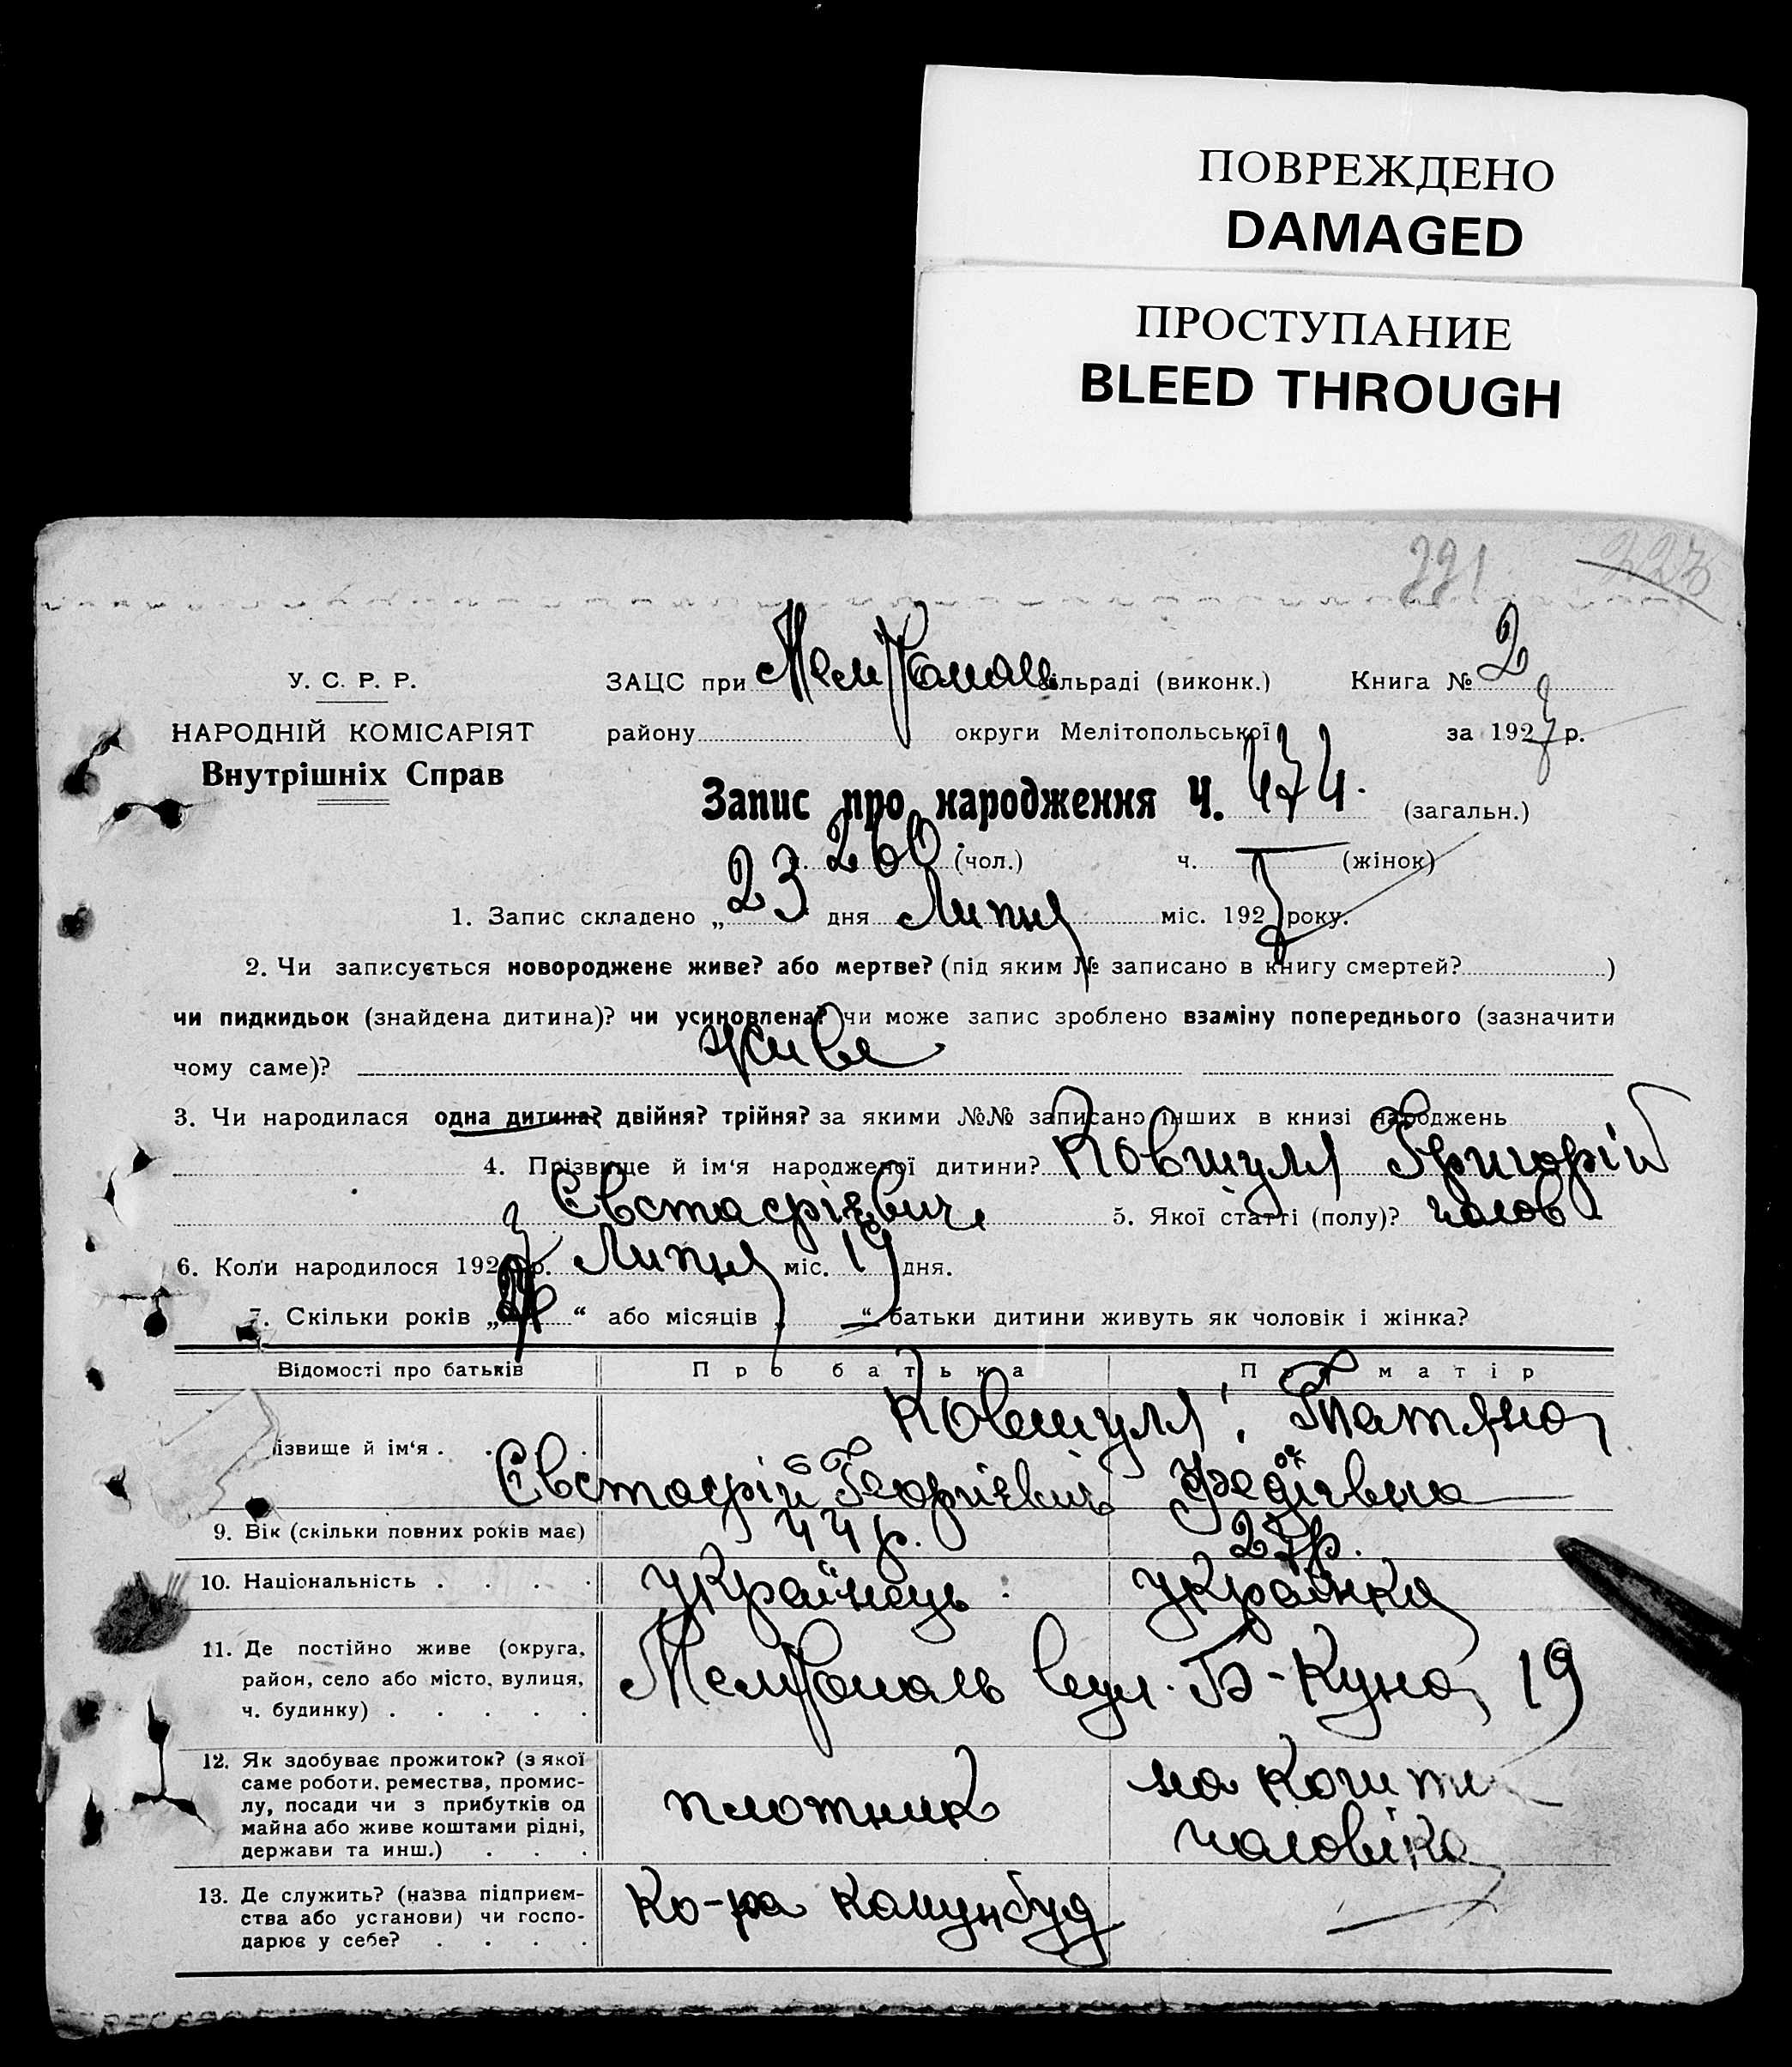 ПОВРЕЖДЕНО
DAMAGED
ПРОСТУПАНИЕ
BLEED THROUGH
221 223
У. С. Р. Р. ЗАЦС при Мелітополь сільраді (виконк.) Книга № 2
НАРОДНІЙ КОМІСАРІЯТ району округи Мелітопольської за 1927 р.
Внутрішніх Справ
Запис про народження Ч. 474. (загальн.)
ч. 260 (чол.) ч. — (жінок)
1. Запис складено „23 дня Липня міс. 1927 року.
2. Чи записується новороджене живе? або мертве? (під яким № записано в книгу смертей? )
чи пидкидьок (знайдена дитина)? чи усиновлена? чи може запис зроблено взаміну попереднього (зазначити
чому саме)? живе
3. Чи народилася одна дитина? двійня? трійня? за якими №№ записано інших в книзі народжень
4. Прізвище й ім‘я народженої дитини? Ковшуля Григорій
Євстафієвич 5. Якої статті (полу)? чолов
6. Коли народилося 1927 р. Липня міс. 19 дня.
7. Скільки років „ “ або місяців „ — “ батьки дитини живуть як чоловік і жінка?
Відомості про батьків Про батька Про матір
ізвище й ім‘я . . . . Ковшуля Татяна
Євстафій Георгієвич Федієвна
9. Вік (скільки повних років має) 44 р. 27 р.
10. Національність . . . . українець українка
11. Де постійно живе (округа,
район, село або місто, вулиця,
ч. будинку) . . . . . Мелітополь вул. Б-Куна, 19
12. Як здобуває прожиток? (з якої
саме роботи, ремества, промис-
лу, посади чи з прибутків од
майна або живе коштами рідні,
держави та инш.) . . . плотник на кошти
чоловіка
13. Де служить? (назва підприєм-
ства або установи) чи госпо-
дарює у себе? . . . . Ко-ра комунбуд —